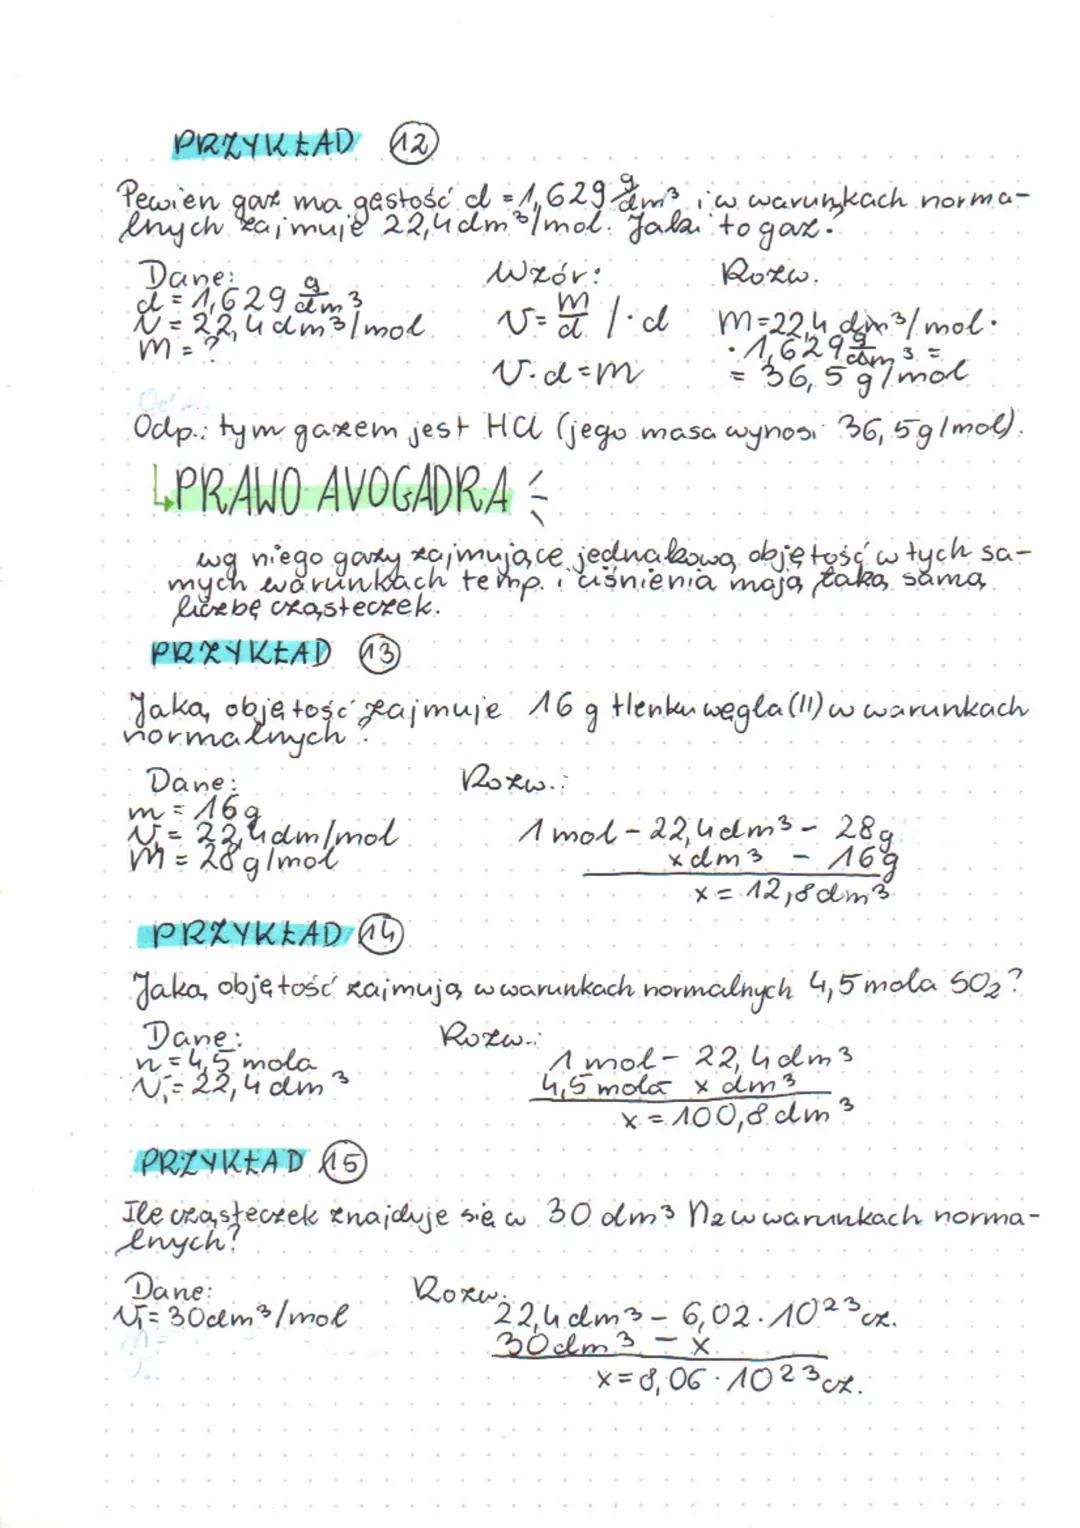 PRZYKŁAD 12
Pewien gaz ma gęstość d = 1,629 g/dm³ i w warunkach norma-
lnych zajmuje 22,4 dm³/mol. Jaki to gaz.
Dane: Wzór: Rozw.
d = 1,629 g/dm³
V = 22,4 dm³/mol
m = ?
V = m/d /·d
V·d=m
M=22,4 dm³/mol·
·1,629 g/dm³ =
= 36,5 g/mol
Odp.: tym gazem jest HCl (jego masa wynosi 36,5g/mol).
↳PRAWO AVOGADRA
wg niego gazy zajmujące jednakową objętość w tych sa-
mych warunkach temp. i ciśnienia mają taką samą
liczbę cząsteczek.
PRZYKŁAD 13
Jaką objętość zajmuje 16 g tlenku węgla (II) w warunkach
normalnych?
Dane: Rozw.:
m = 16g
V = 22,4dm/mol
M = 28g/mol
1 mol - 22,4dm³ - 28g
x dm³ - 16g
x = 12,8dm³
PRZYKŁAD 14
Jaką objętość zajmują w warunkach normalnych 4,5 mola SO₂?
Dane: Rozw.:
n = 4,5 mola
V₁ = 22,4 dm³
1 mol - 22,4dm³
4,5 mola x dm³
x = 100,8 dm³
PRZYKŁAD 15
Ile cząsteczek znajduje się w 30 dm³ N₂ w warunkach norma-
lnych?
Dane: Rozw.
V₁= 30dm³/mol
22,4 dm³ - 6,02·10²³cz.
30dm³ - x
x = 8,06·10²³cz.